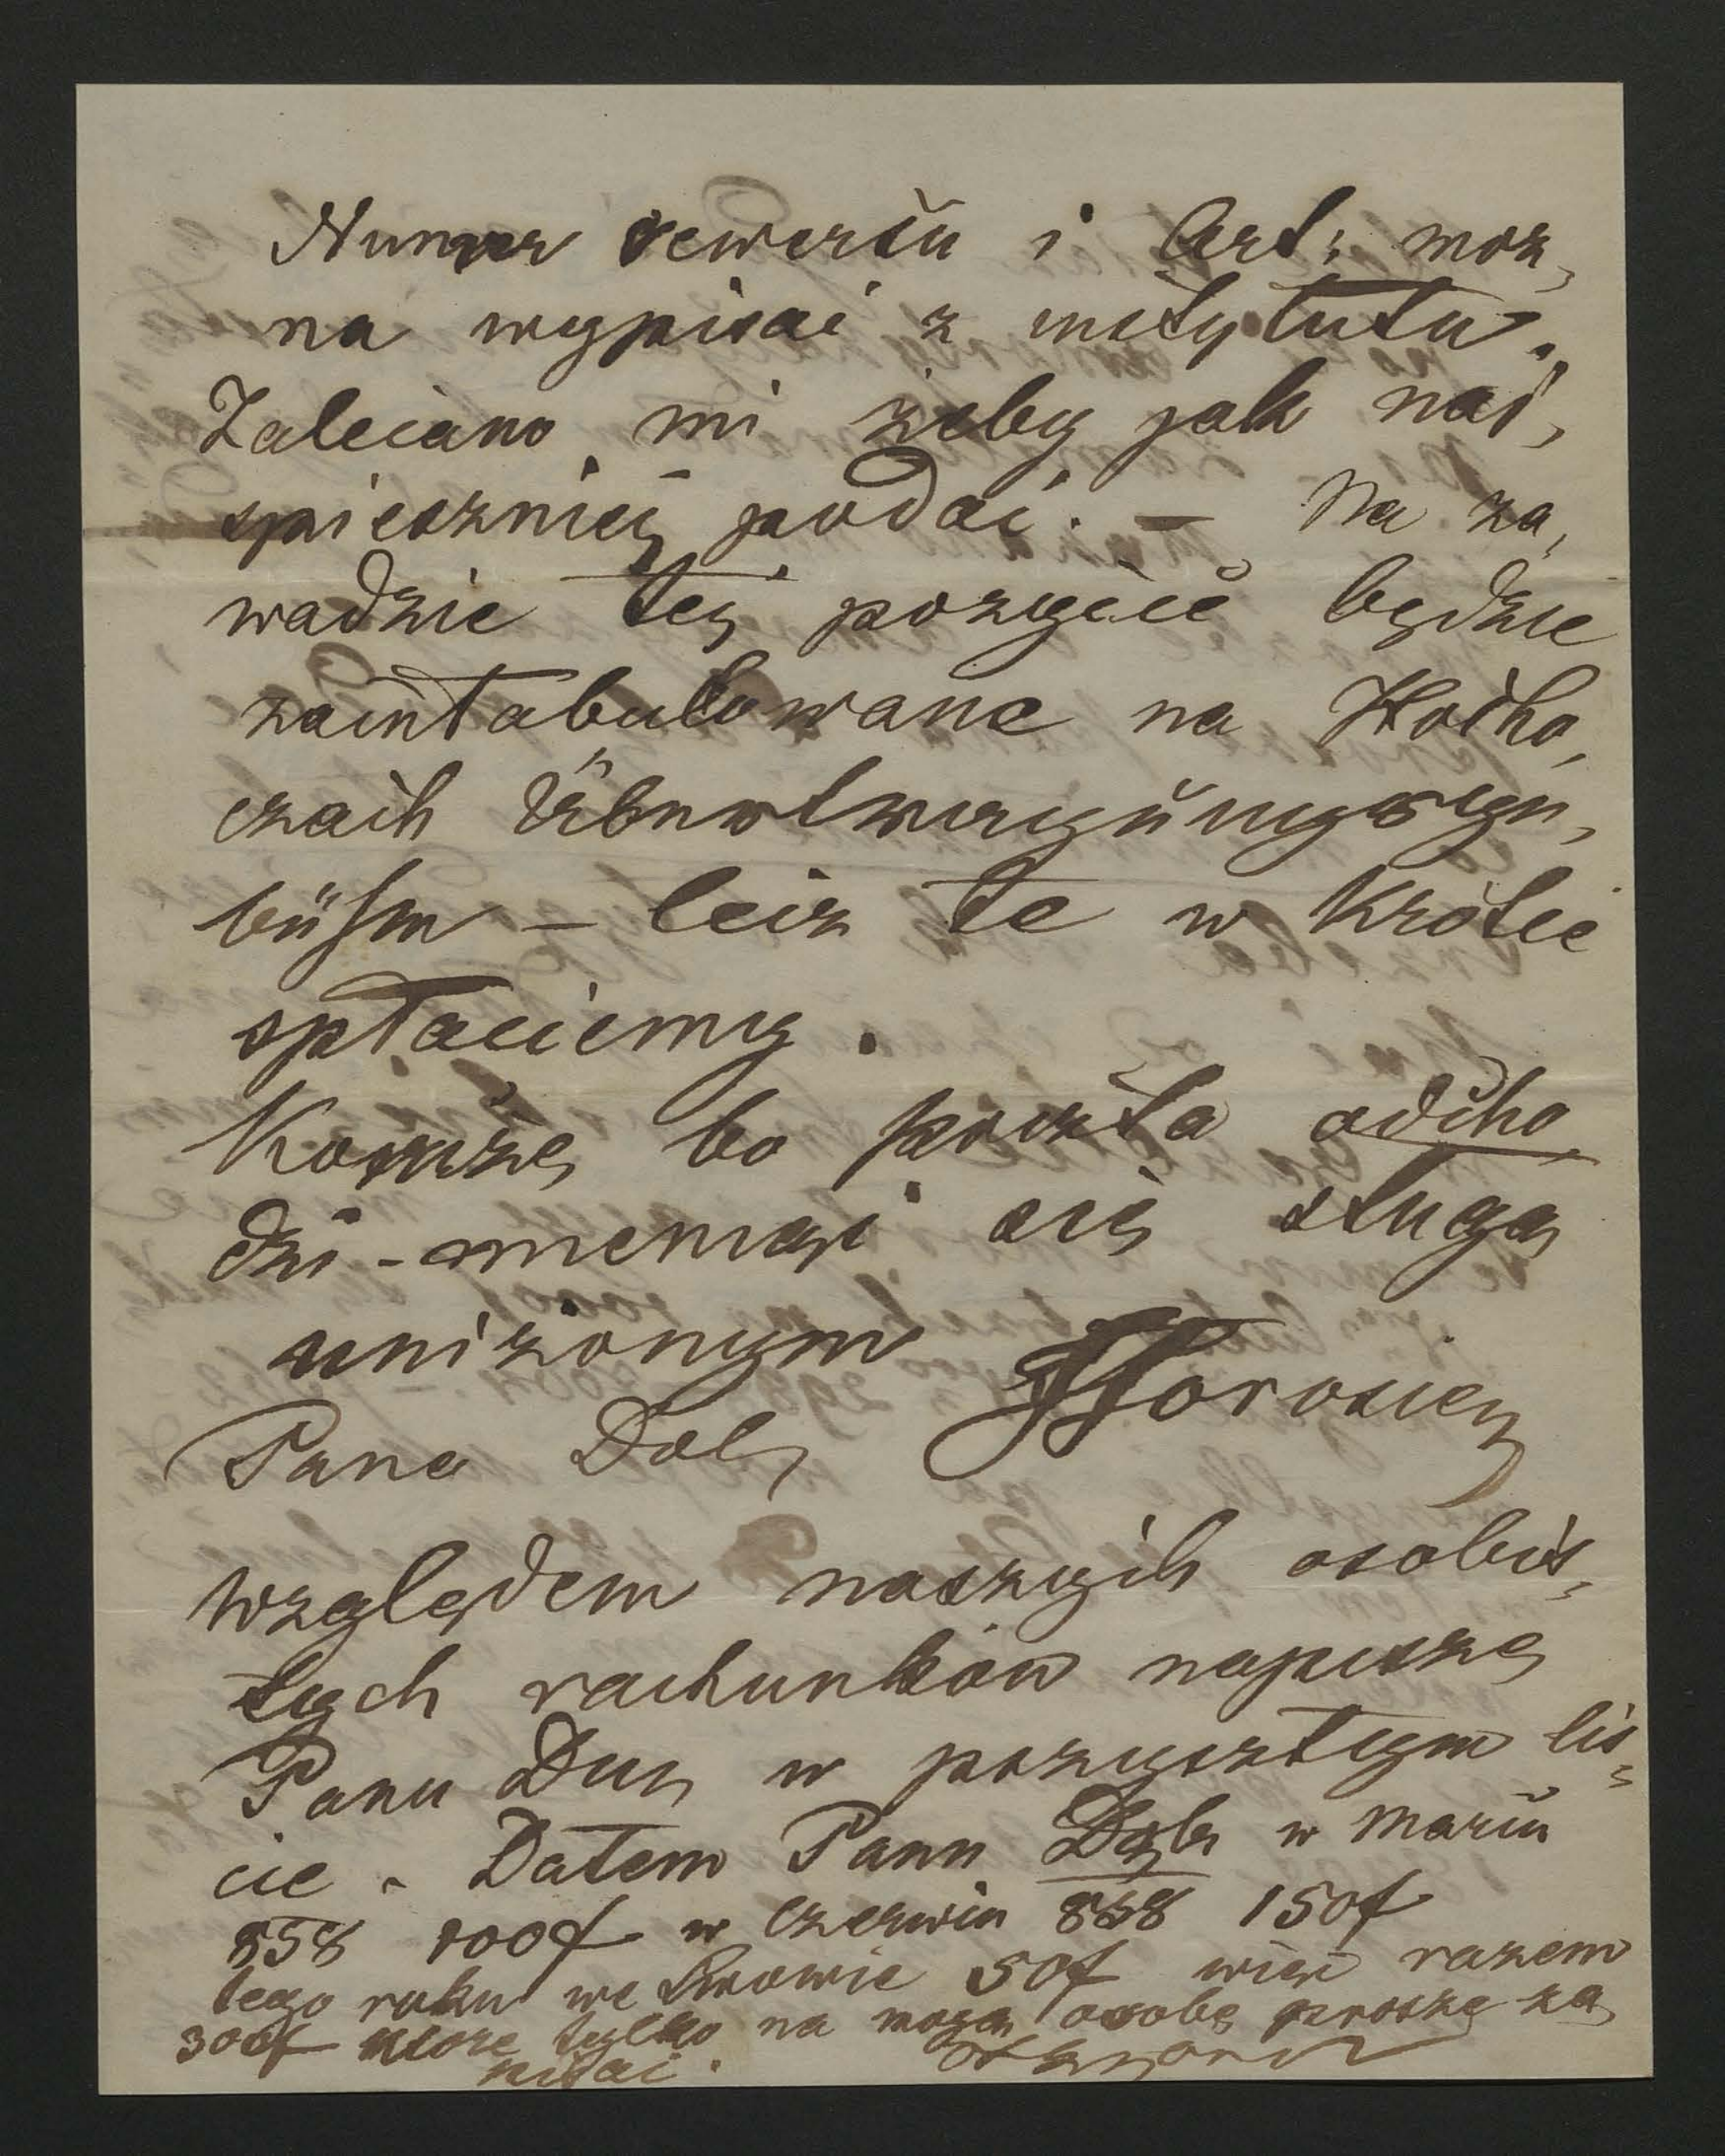 Numer rewersu i Art: moż,
na wypisać z instytutu.
Zalecano mi żeby jak naj,
spieszniej podać. — Na za,
wadzie tej pozycie będzie
zaintabulowane na Hocho,
czach Übertragungsge,
bühren – lecz te w krótce
spłaciemy.
Kończę bo poczta odcho,
dzi – mieniąc się sługą
uniżonym
Pana Dob,
względem naszych osobis,
tych rachunków napiszę
Panu Du, w przysztym lis,
cie. Dałem Panu Dob, w Marcu
858 100f w czerwcu 858 150f
tego roku we Lwowie 50f więc razem
300f które tylko na moją osobę proszę za
pisać.